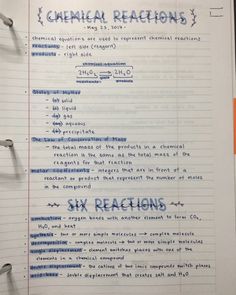 CHEMICAL REACTIONS
- May 23, 2016 -
chemical equations are used to represent chemical reactions
reactants - left side (reagent)
products - right side
chemical equation
2H₂O₂ → 2H₂O
reactants products
States of Matter
- (s) solid
- (l) liquid
- (g) gas
- (aq) aqueous
- (↓) precipitate
The Law of Conservation of Mass
- the total mass of the products in a chemical
reaction is the same as the total mass of the
reagents for that reaction
molar coefficients - integers that are in front of a
reactant or product that represent the number of moles
in the compound
SIX REACTIONS
combustion - oxygen bonds with another element to form CO₂,
H₂O, and heat
synthesis - two or more simple molecules → complex molecule
decomposition - complex molecule → two or more simple molecules
single displacement - element switches places with one of the
elements in a chemical compound
double displacement - the cations of two ionic compounds switch places
acid-base - double displacement that creates salt and H₂O